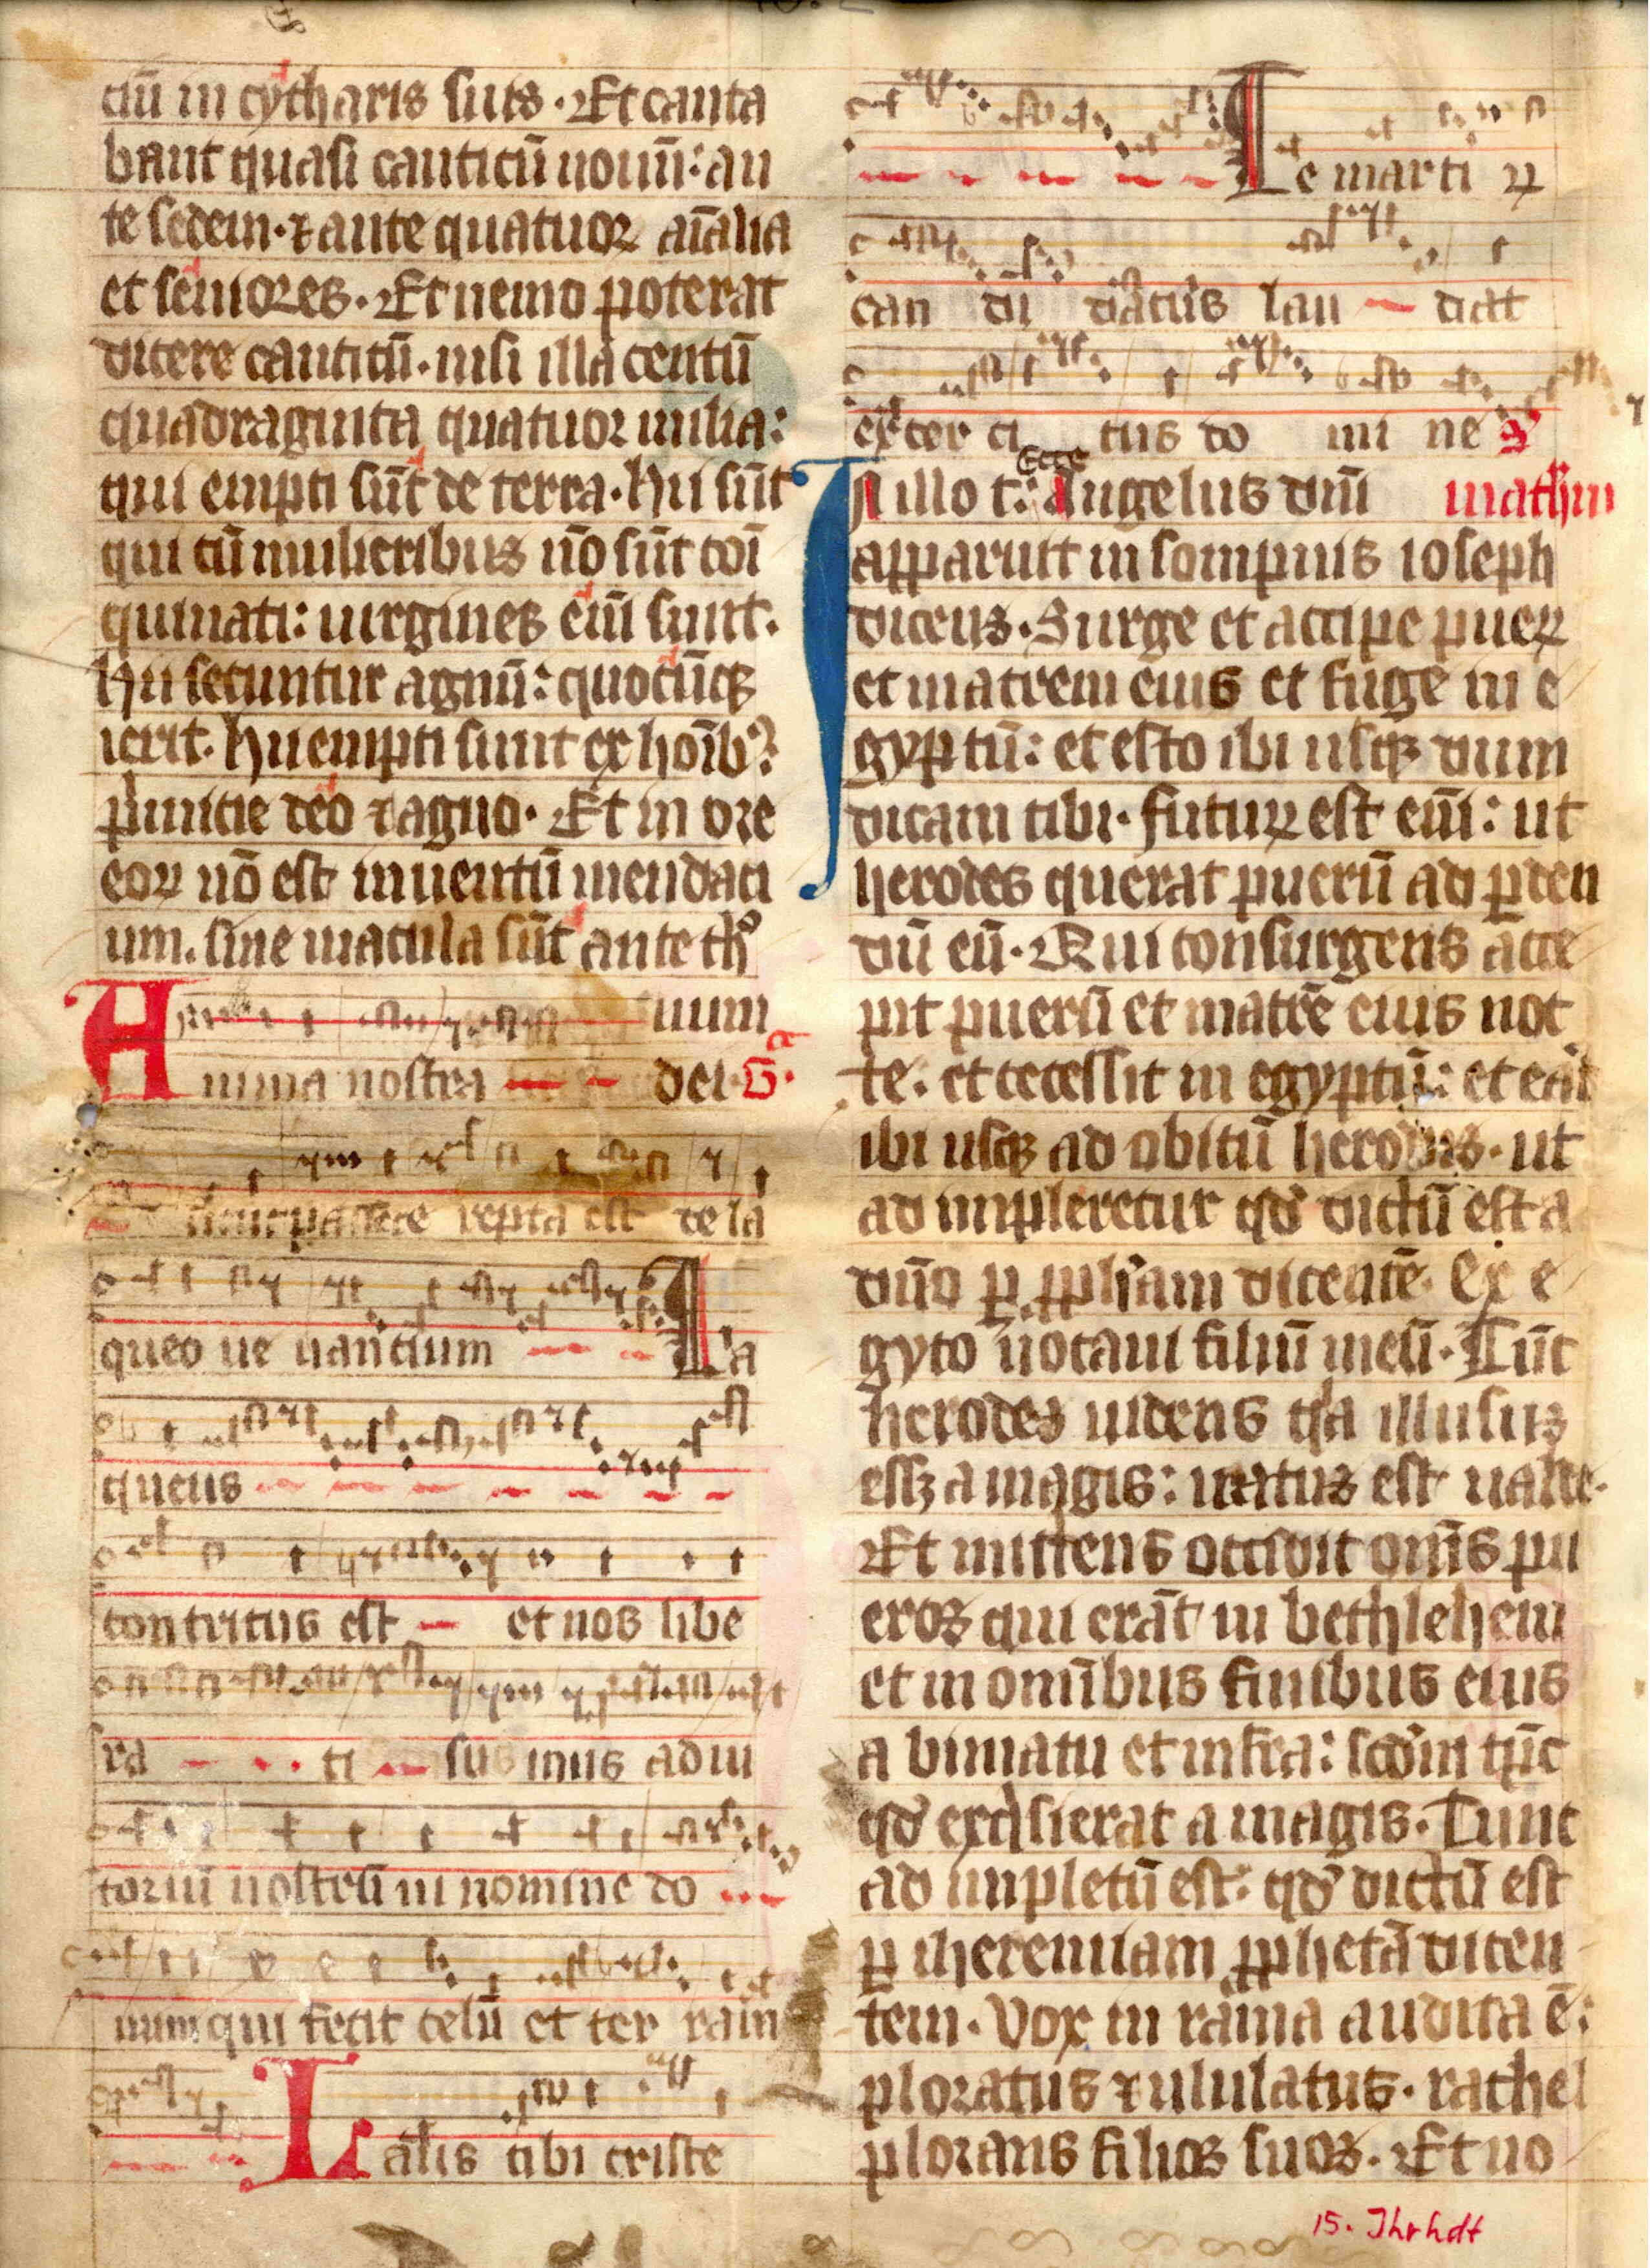 ciū in cytharis suis · Et canta
bant quasi canticū nouū: an
te sedem · ⁊ ante quatuor aīalia
et seniores · Et nemo poterat
dicere canticū · nisi illa centū
quadraginta quatuor milia:
qui empti sūt de terra · hii sūt
qui cū mulieribus nō sūt coī
quinati: uirgines eīn sunt ·
hii secuntur agnū: quocūqꝫ
ierit · hii empti sunt ex hoībꝰ
pͥmicie deo ⁊ agno · Et in ore
eoꝝ nō est inuentū mendaci
um. sine macula sūt ante th
num
Anima nostra dei · Gͣ
sicut passere
repta est de la
queo ue nancium La
queus
contritus est et nos libe
ra ti su mus adiu
toriū nostrū in nomine do
num qui fecit celū et ter ram
Laus tibi criste
Te marti ꝝ
can di datus lau dat
exer ci tus do mi ne
Ecce
In illo t: Angelus dn̄i math
apparuit in sompnis ioseph
dicens · Surge et accipe pueꝝ
et matrem eius et fuge in e
gyptū: et esto ibi usqꝫ dum
dicam tibi · futuꝝ est eīn: ut
herodes querat puerū ad ꝑden
dū eū · Qui consurgens acce
pit puerū et matrē eius noc
te · et secessit in egyptū: et erāt
ibi usqꝫ ad obitū herodis · ut
ad impleretur qd̄ dictū est a
dn̄o ꝑ ꝓph̄am dicentē · Ex e
gyto uocaui filiū meū · Tūc
herodes uidens qͥa illusus
essꝫ a magis: iratus est ualde ·
Et mittens occidit om̄s pu
eros qui erāt in bethlehem
et in omībus finibus eius
a bimatu et infra: scd̄m tēc
qd̄ exqͥsierat a magis · Tunc
ad impletū est: qd̄ dictū est
ꝑ iheremiam ꝓphetā dicen
tem · Vox in rama audita ē:
ploratus ⁊ ululatus · rachel
plorans filios suos · Et no
15. Jhrhdt